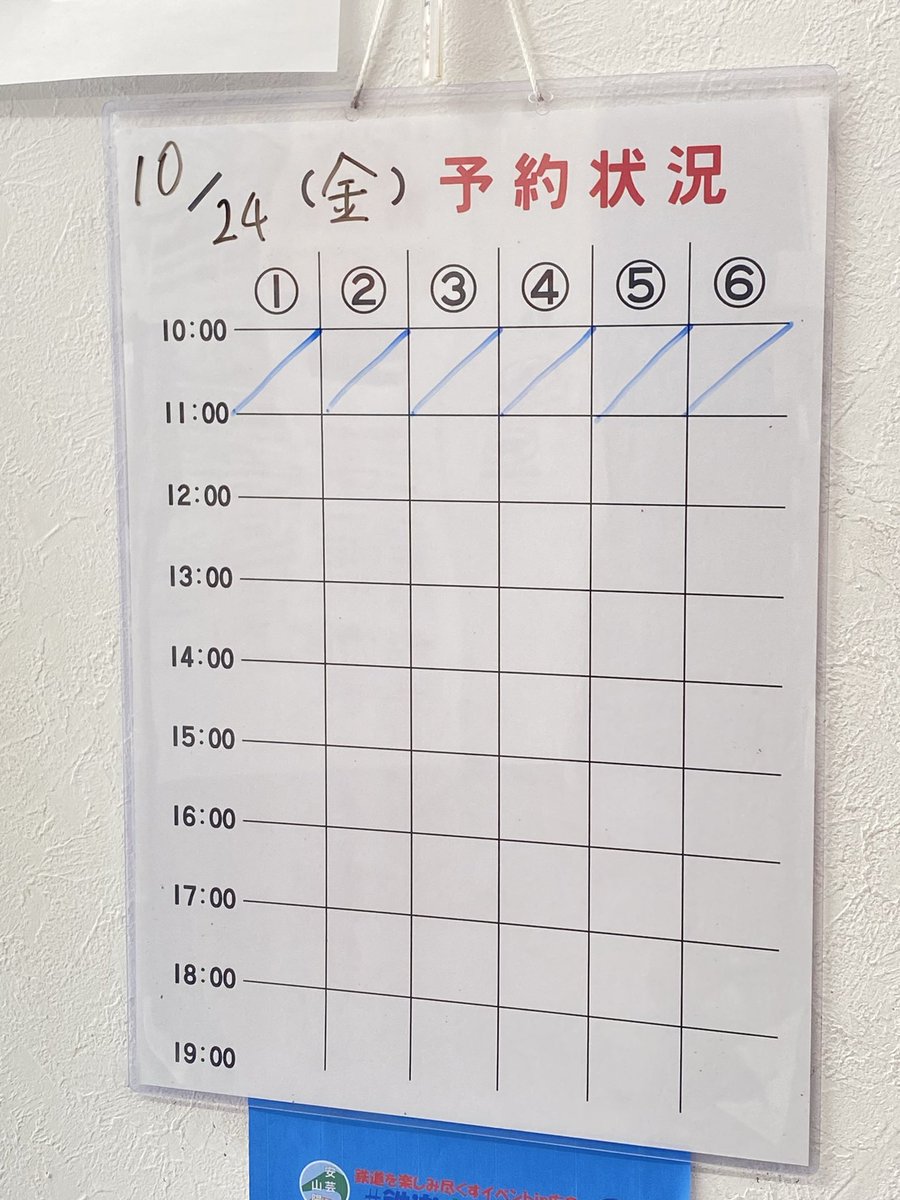 10/24(金) 予約状況
① ② ③ ④ ⑤ ⑥
10:00
11:00
12:00
13:00
14:00
15:00
16:00
17:00
18:00
19:00
安芸
山
鉄道を楽しみ尽くすイベント